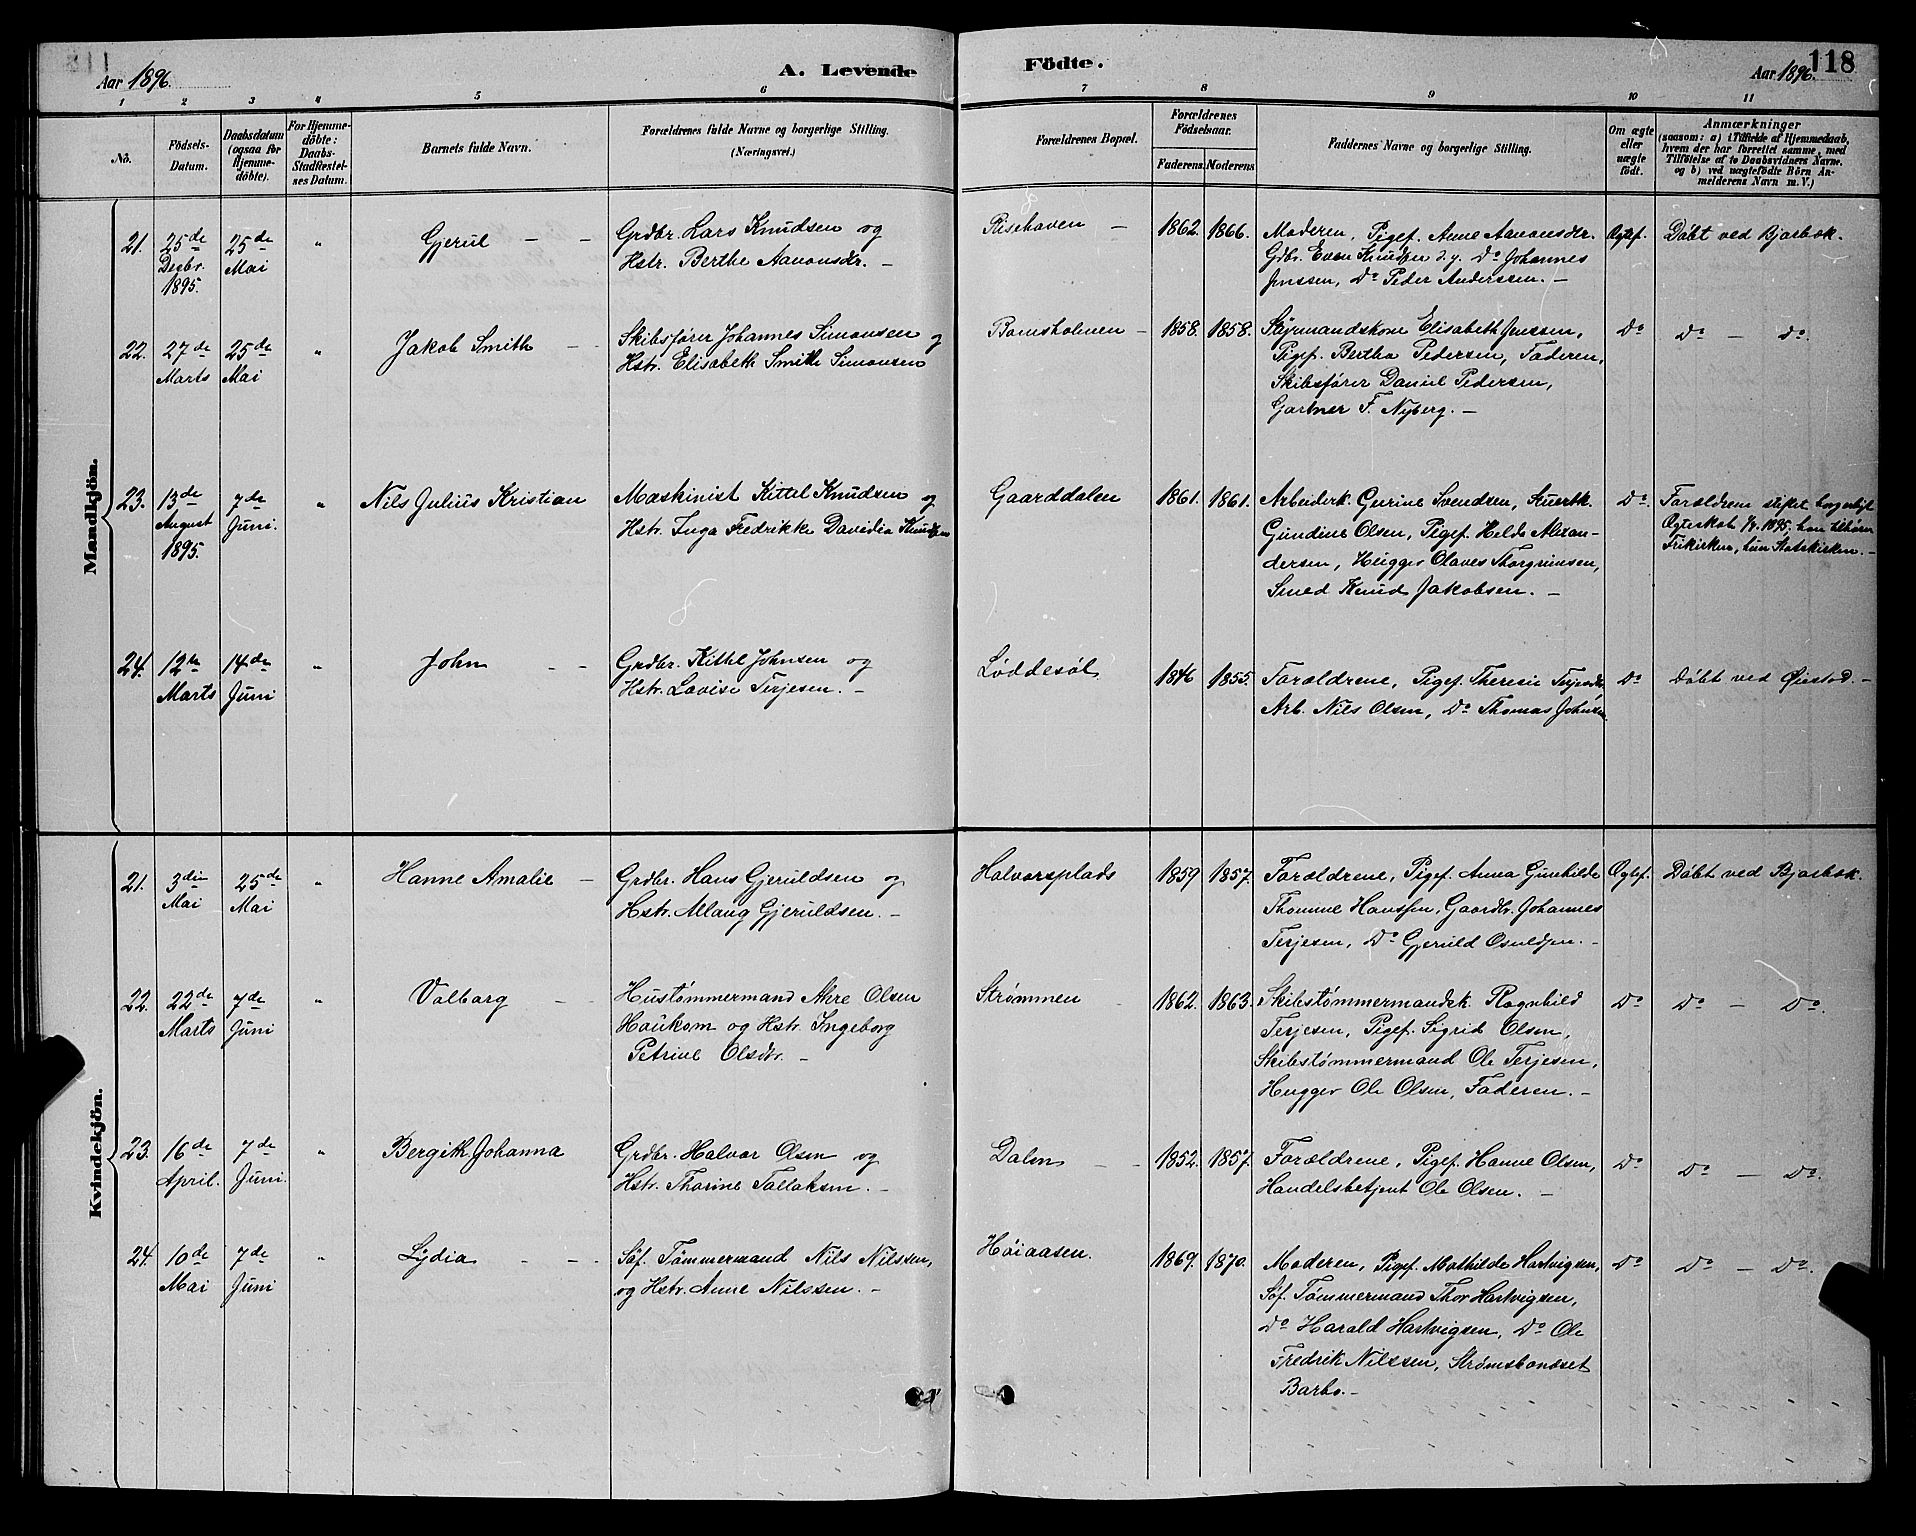 Aar 1896.
A. Levende Födte.
Aar 1896. 118
1 2 3 4 5 6 7 8 9 10 11
No.
Födsels-
Datum.
Daabsdatum
(ogsaa for
Hjemme-
döbte).
For Hjemme-
döbte:
Daabs-
Stadfæstel-
ses Datum.
Barnets fulde Navn.
Forældrenes fulde Navne og borgerlige Stilling.
(Næringsvei.)
Forældrenes Bopæl.
Forældrenes
Födselsaar.
Faderens Moderens
Faddernes Navne og borgerlige Stilling.
Om ægte
eller
uægte
født.
Anmærkninger
(saasom: a) i Tilfælde af Hjemmedaab,
hvem der har forrettet samme, med
Tilføielse af to Daabsvidners Navne.
og b) ved uægtefødte Börn An-
melderens Navn m. V.)
Mandkjön.
21. 25de Decbr. 1895. 25de Mai " Gjerul - -
Grdbr. Lars Knudsen og
Hstr. Berthe Aanonsdr. -
Risehaven - 1862. 1866.
Moderen, Pigef. Anne Aanonsdr.
Gdbr. Even Knudsen d.y. Do Johannes
Jenssen, Do Peder Anderssen. -
Ægtef. Döbt ved Bjorbæk.
22. 27de Marts 25de Mai " Jakob Smith -
Skibsfører Johannes Simonsen og
Hstr. Elisabeth Smith Simonsen
Bomsholmen - 1858. 1858.
Styrmandskone Elisabeth Jenssen,
Pigef. Bertha Pedersen, Faderen,
Skibsfører Daniel Pedersen,
Gartner F. Nyberg. -
Do Do - Do.
23. 13de August 1895. 7de Juni. " Nils Julius Kristian
Maskinist Kittel Knudsen og
Hstr. Inga Fredrikke Davidia Knudsen
Gaarddalen 1861. 1861.
Arbeiderk. Gurine Svendsen, Skuertk.
Gundine Olsen, Pigef. Helde Alexan-
dersen, Hugger Olaves Thorgrimsen,
Smed Knud Jakobsen. -
Do. Forældrene stiftet borgerligt
Ægteskab 1895; han tilhører
Frikirken, hun Statskirken. -
24. 12te Marts 14de Juni " John - -
Grdbr. Kittel Johnsen og
Hstr. Lovise Terjesen. -
Løddesøl 1846 1855.
Forældrene, Pigef. Theresie Terjesdr.
Arb. Nils Olsen, Do Thomas Johnsen
Do Döbt ved Øiestad. -
Kvindekjön.
21. 3die Mai 25de Mai " Hanne Amalie -
Grdbr. Hans Gjeruldsen og
Hstr. Allaug Gjeruldsen. -
Halvorsplads 1859 1857.
Forældrene, Pigef. Anna Gunhilde
Thomine Hanssen, Gaardbr. Johannes
Terjesen, Do Gjeruld Osuldsen. -
Ægtef. Döbt ved Bjorbæk.
22. 22de Marts 7de Juni " Valborg - -
Hustømmermand Akre Olsen
Haukom og Hstr. Ingeborg
Petrine Olsdr. -
Strømmen 1862. 1863.
Skibstømmermandsk. Ragnhild
Terjesen, Pigef. Sigrid Olsen,
Skibstømmermand Ole Terjesen,
Hugger Ole Olsen, Faderen. -
Do Do - Do.
23. 16de April. 7de Juni. " Bergith Johanna
Grdbr. Halvor Olsen og
Hstr. Thorine Tallaksen. -
Dalen - - 1852. 1857.
Forældrene, Pigef. Hanne Olsen,
Handelsbetjent Ole Olsen. -
Do Do - Do.
24. 10de Mai 7de Juni " Lydia - - -
Søf. Tømmermand Nils Nilssen,
og Hstr. Anne Nilssen. -
Høiaasen. 1869. 1870.
Moderen, Pigef. Mathilde Hartvigsen,
Søf. Tømmermand Thor Hartvigsen,
Do Harald Hartvigsen, Do Ole
Fredrik Nilssen, Strømsbonæset
Barbo. -
Do Do - Do.